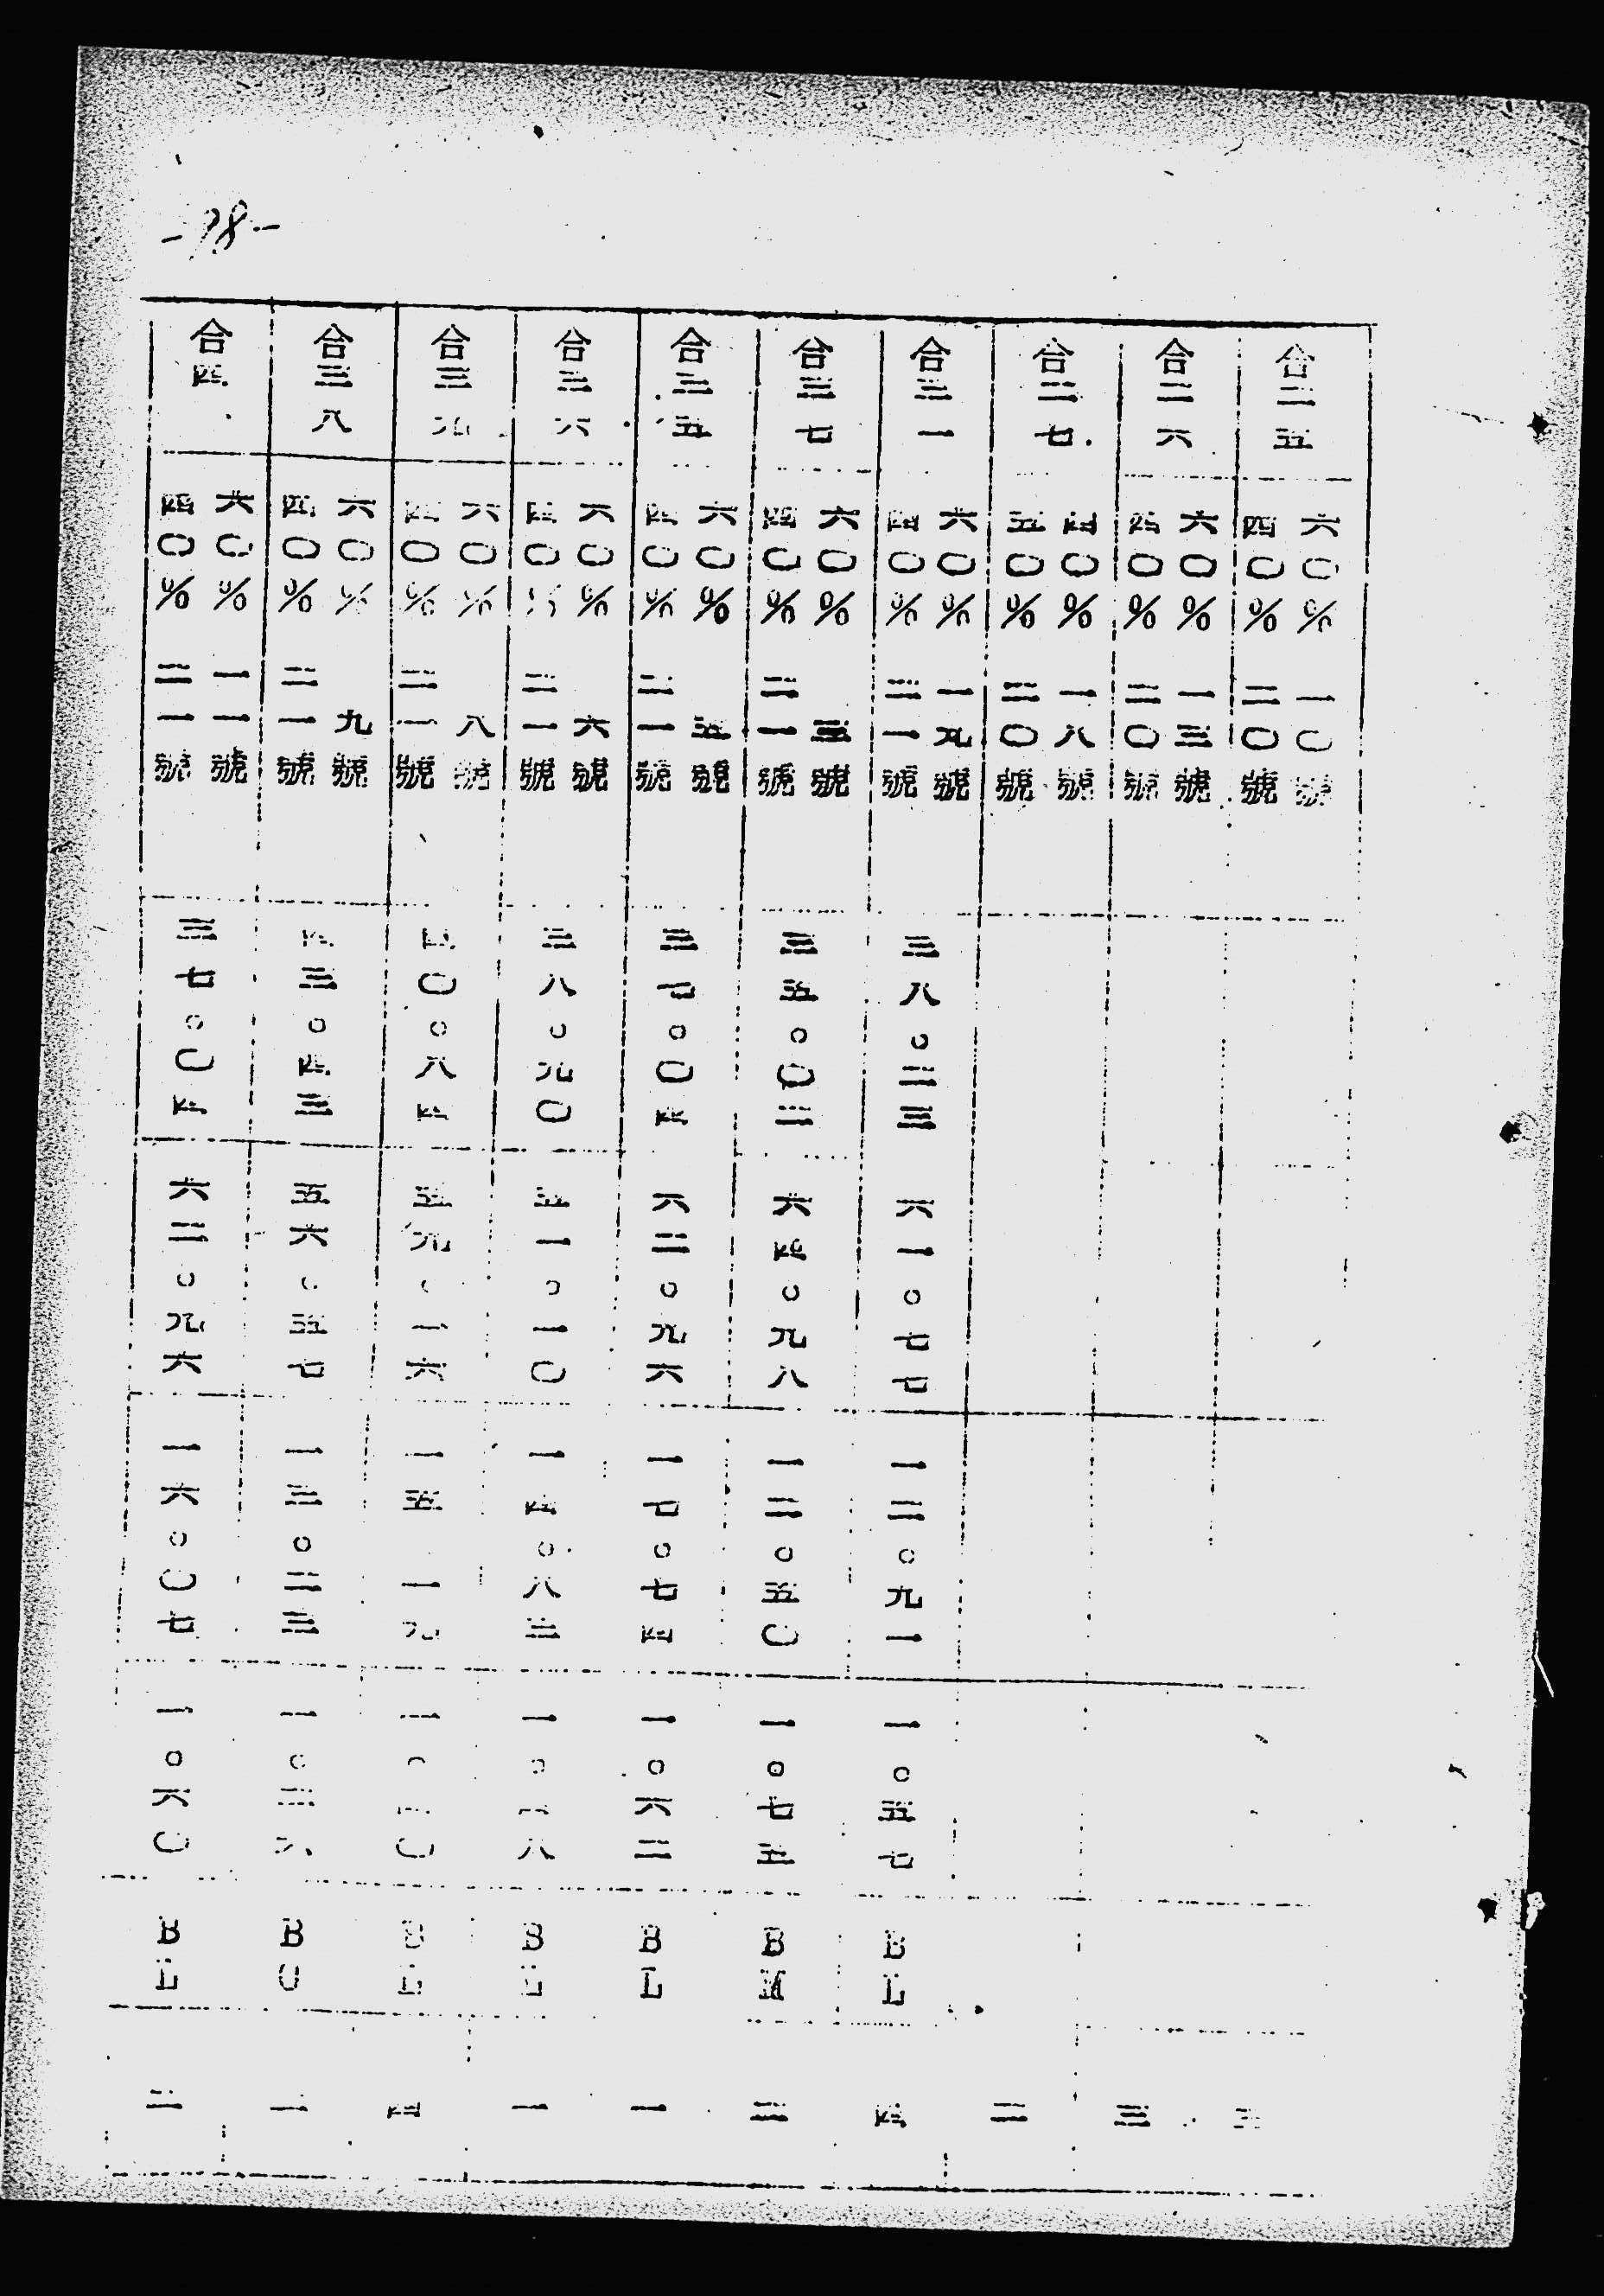 合二五
六〇%一〇號
四〇%二〇號
合二六
六〇%一三號
四〇%二〇號
三
合二七
四〇%一八號
五〇%二〇號
二
合三一
六〇%一九號
四〇%二一號
三八。二三
六一。七七
一二。九一
一。五七
BL
四
合三七
六〇%三號
四〇%二一號
三五。〇二
六四。九八
一二。五〇
一。七五
BM
二
合三五
六〇%五號
四〇%二一號
三七。〇四
六二。九六
一七。七四
一。六二
BL
一
合三六
六〇%六號
四〇%二一號
三八。九〇
五一。一〇
一四。八三
BL
一
合三九
六〇%八號
四〇%二一號
四〇。八四
五九。一六
一五。一九
BL
四
合三八
六〇%九號
四〇%二一號
四三。四三
五六。五七
一三。二三
一。三六
一
合四
六〇%一一號
四〇%二一號
三七。〇四
六二。九六
一六。〇七
一。六〇
BL
二